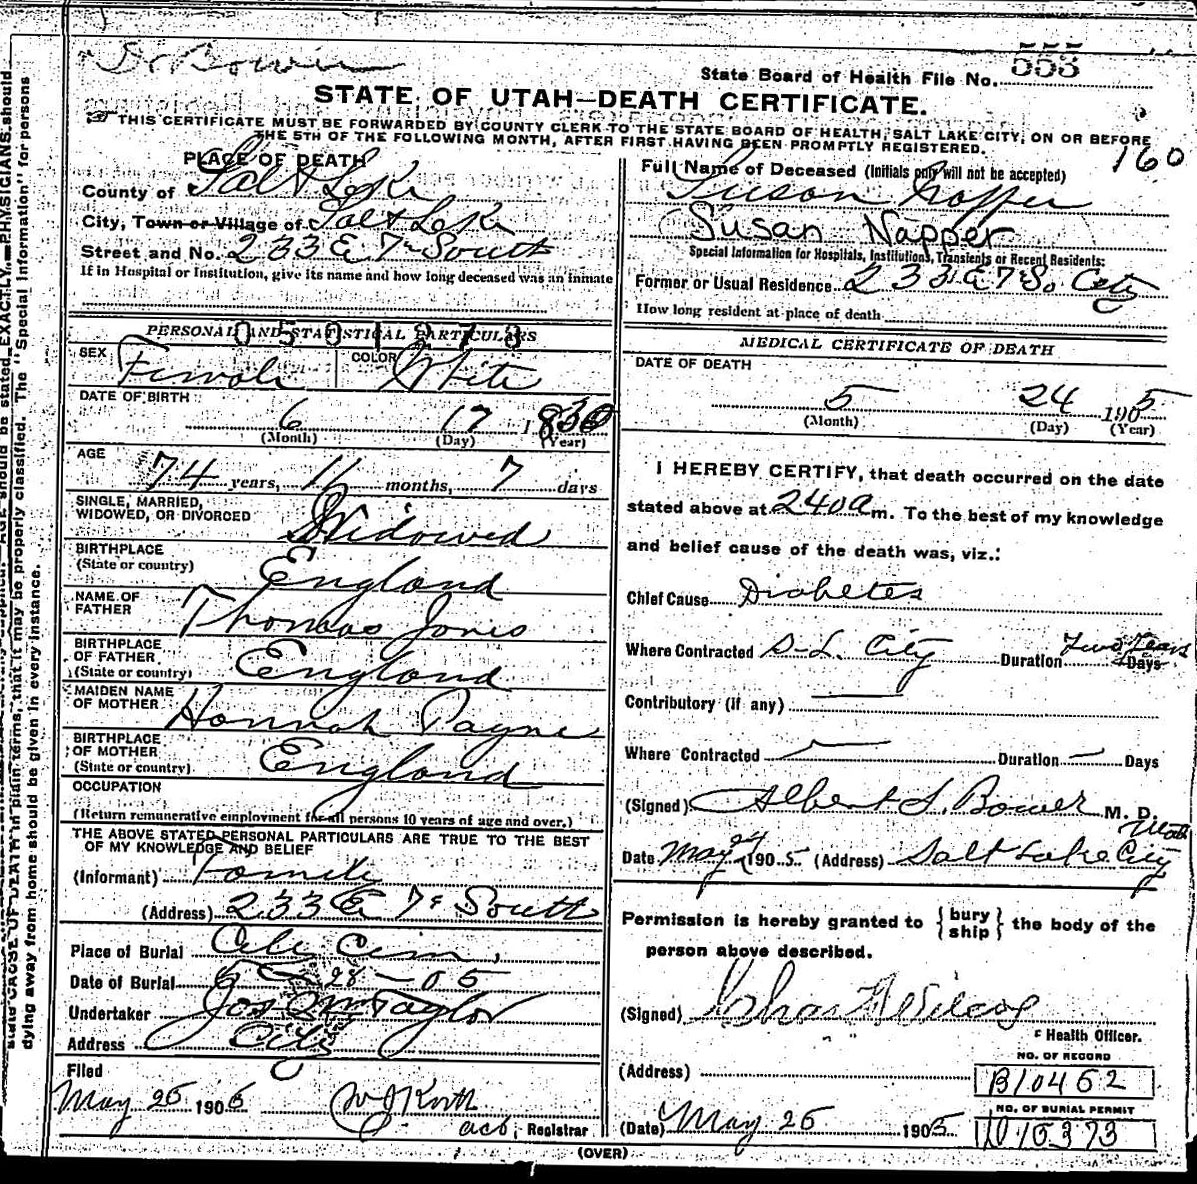 Dr Bower
State Board of Health File No. 553
STATE OF UTAH—DEATH CERTIFICATE.
THIS CERTIFICATE MUST BE FORWARDED BY COUNTY CLERK TO THE STATE BOARD OF HEALTH, SALT LAKE CITY, ON OR BEFORE
THE 5TH OF THE FOLLOWING MONTH, AFTER FIRST HAVING BEEN PROMPTLY REGISTERED.
160
PLACE OF DEATH
County of Salt Lake
City, Town or Village of Salt Lake
Street and No. 233 E 7th South
If in Hospital or Institution, give its name and how long deceased was an inmate
PERSONAL AND STATISTICAL PARTICULARS
SEX Female COLOR White
DATE OF BIRTH
6 17 1830
(Month) (Day) (Year)
AGE
74 years, 11 months, 7 days
SINGLE, MARRIED,
WIDOWED, OR DIVORCED Widowed
BIRTHPLACE
(State or country) England
NAME OF
FATHER Thomas Jones
BIRTHPLACE
OF FATHER
(State or country) England
MAIDEN NAME
OF MOTHER Hannah Payne
BIRTHPLACE
OF MOTHER
(State or country) England
OCCUPATION
(Return remunerative employment for all persons 10 years of age and over.)
THE ABOVE STATED PERSONAL PARTICULARS ARE TRUE TO THE BEST
OF MY KNOWLEDGE AND BELIEF
(Informant) Family
(Address) 233 E 7th South
Place of Burial City Cem.
Date of Burial 5-28-05
Undertaker Jos Wm Taylor
Address City
Filed
May 26 1905
Registrar
Full Name of Deceased (Initials only will not be accepted)
Susan Napper
Susan Napper
Special Information for Hospitals, Institutions, Transients or Recent Residents:
Former or Usual Residence 233 E 7 So. City
How long resident at place of death
MEDICAL CERTIFICATE OF DEATH
DATE OF DEATH
5 24 1905
(Month) (Day) (Year)
I HEREBY CERTIFY, that death occurred on the date
stated above at 240 a m. To the best of my knowledge
and belief cause of the death was, viz.:
Chief Cause Diabetes
Where Contracted S-L. City Duration Two Years Days
Contributory (if any)
Where Contracted Duration — Days
(Signed) Albert L. Bower M. D.
Date May 24 1905 (Address) Salt Lake City Utah
Permission is hereby granted to { bury
ship } the body of the
person above described.
(Signed) Chas F Wilcox
Health Officer.
(Address)
NO. OF RECORD
B10462
NO. OF BURIAL PERMIT
(Date) May 26 1905
(OVER)
dying away from home should be given in every instance.